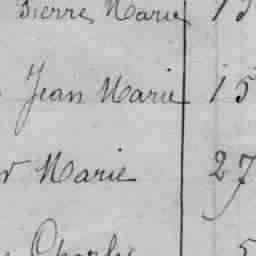 Pierre Marie 15
Jean Marie 15
Marie 27
Charles 5